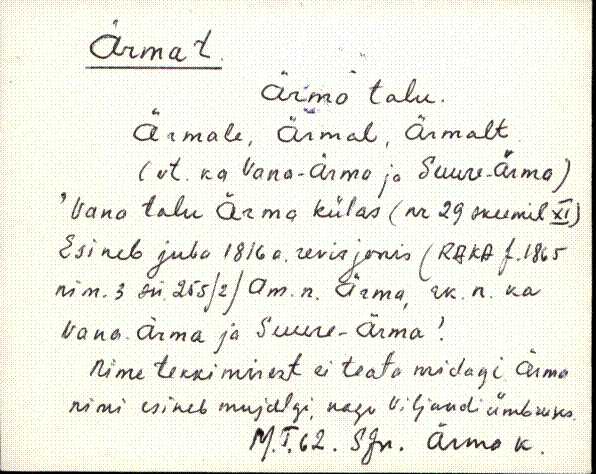 Ärma t.
Ärma talu.
Ärmale, Ärmal, Ärmalt
(vt. ka Vana-Ärma ja Suure-Ärma)
"Vana talu Ärma külas (nr 29 skeemil XI)
Esineb juba 1816 a. revisjonis (RAKA f. 1865
nim. 3 sü. 255/2) Am. n. Ärma, rk. n. ka
Vana-Ärma ja Suure-Ärma".
Nime tekkimisest ei teata midagi. Ärma
nimi esineb mujalgi, nagu Viljandi ümbruses.
M. I. 62. SJn. Ärma k.